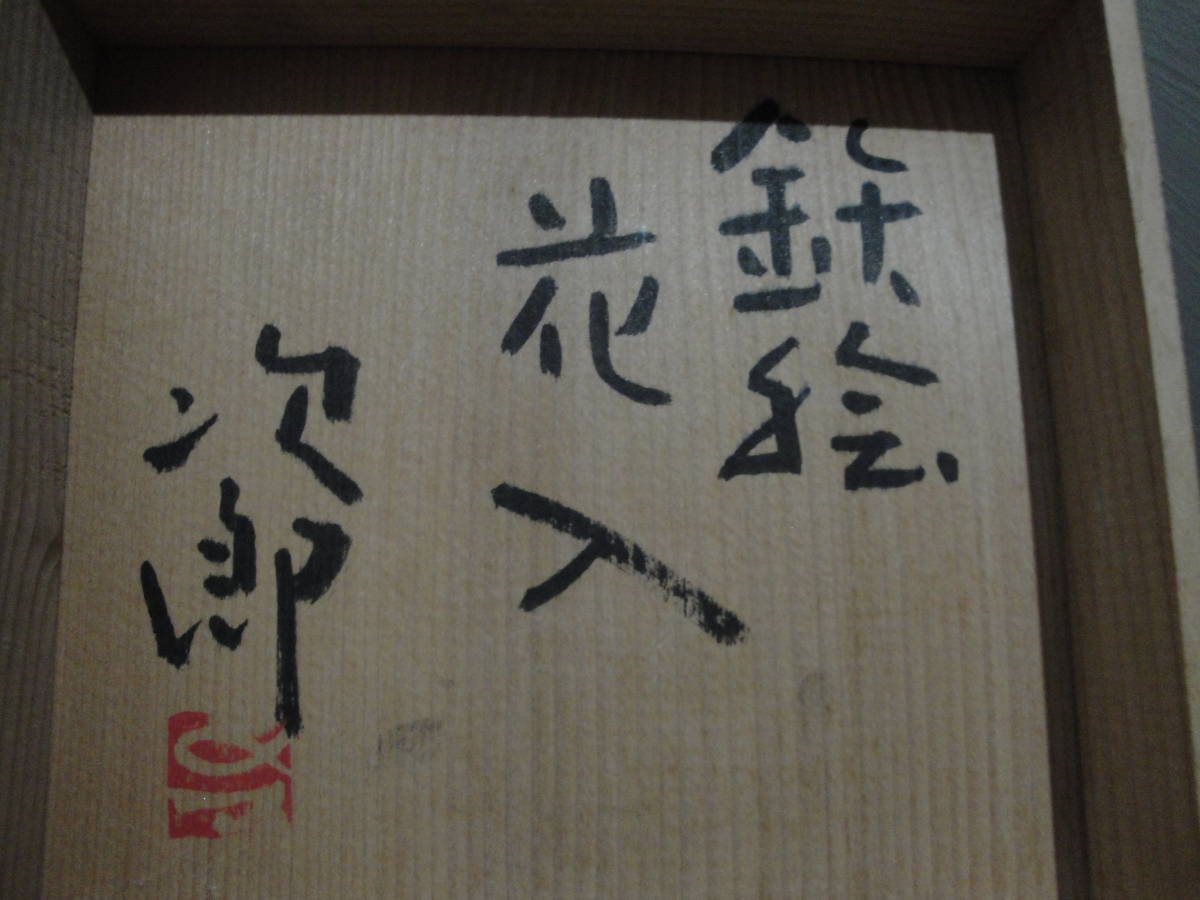 鉄絵
花入
次郎